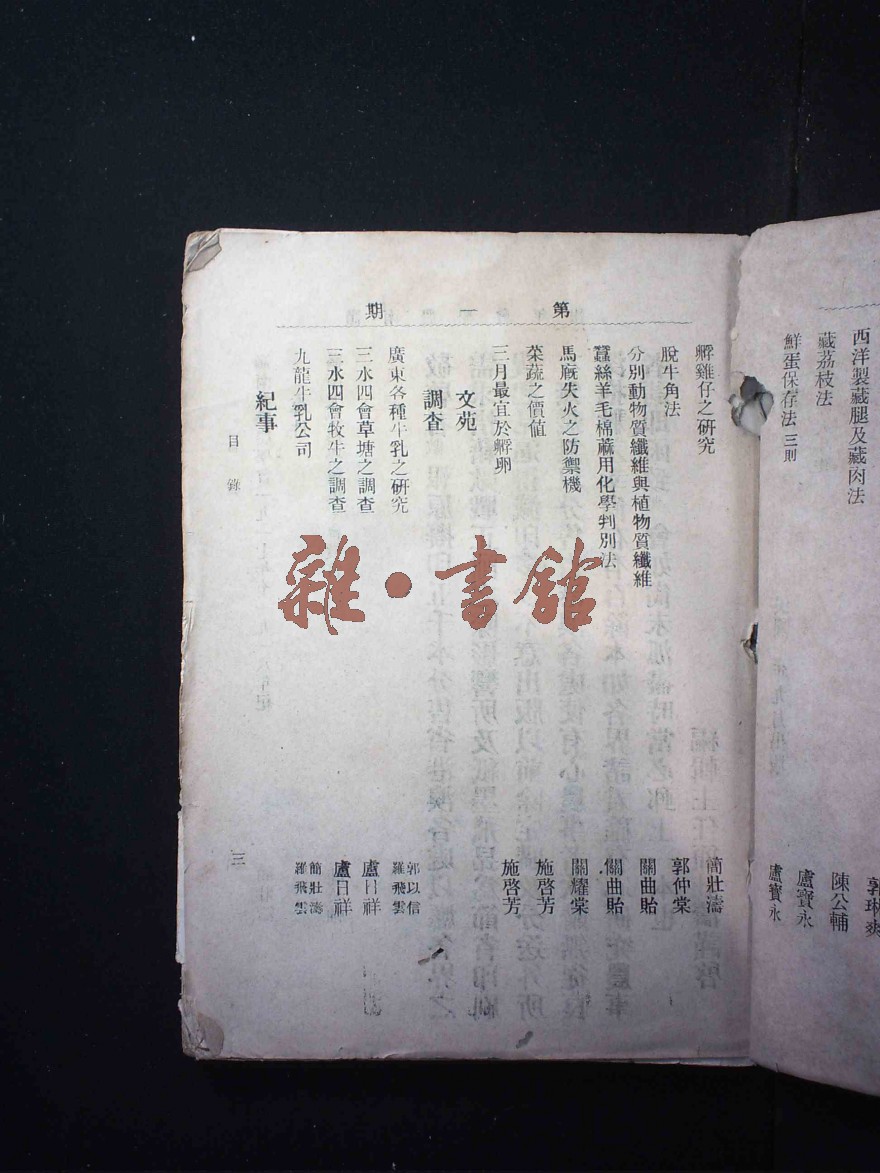 西洋製藏腿及藏肉法
藏荔枝法 陳公輔
鮮蛋保存法 三則 盧寶永
盧寶永
第一期
孵雞仔之研究 簡壯濤
脫牛角法 郭仲棠
分別動物質纖維與植物質纖維 關曲貽
蠶絲羊毛棉蔴用化學判別法 關曲貽
馬廐失火之防禦機 關耀棠
菜蔬之價值 施啓芳
三月最宜於孵卵 施啓芳
文苑
調查
廣東各種牛乳之研究 郭以信 羅飛雲
三水四會草塘之調查 盧日祥
三水四會牧牛之調查 盧日祥
九龍牛乳公司 簡壯濤 羅飛雲
紀事
目錄
三
雜·書館